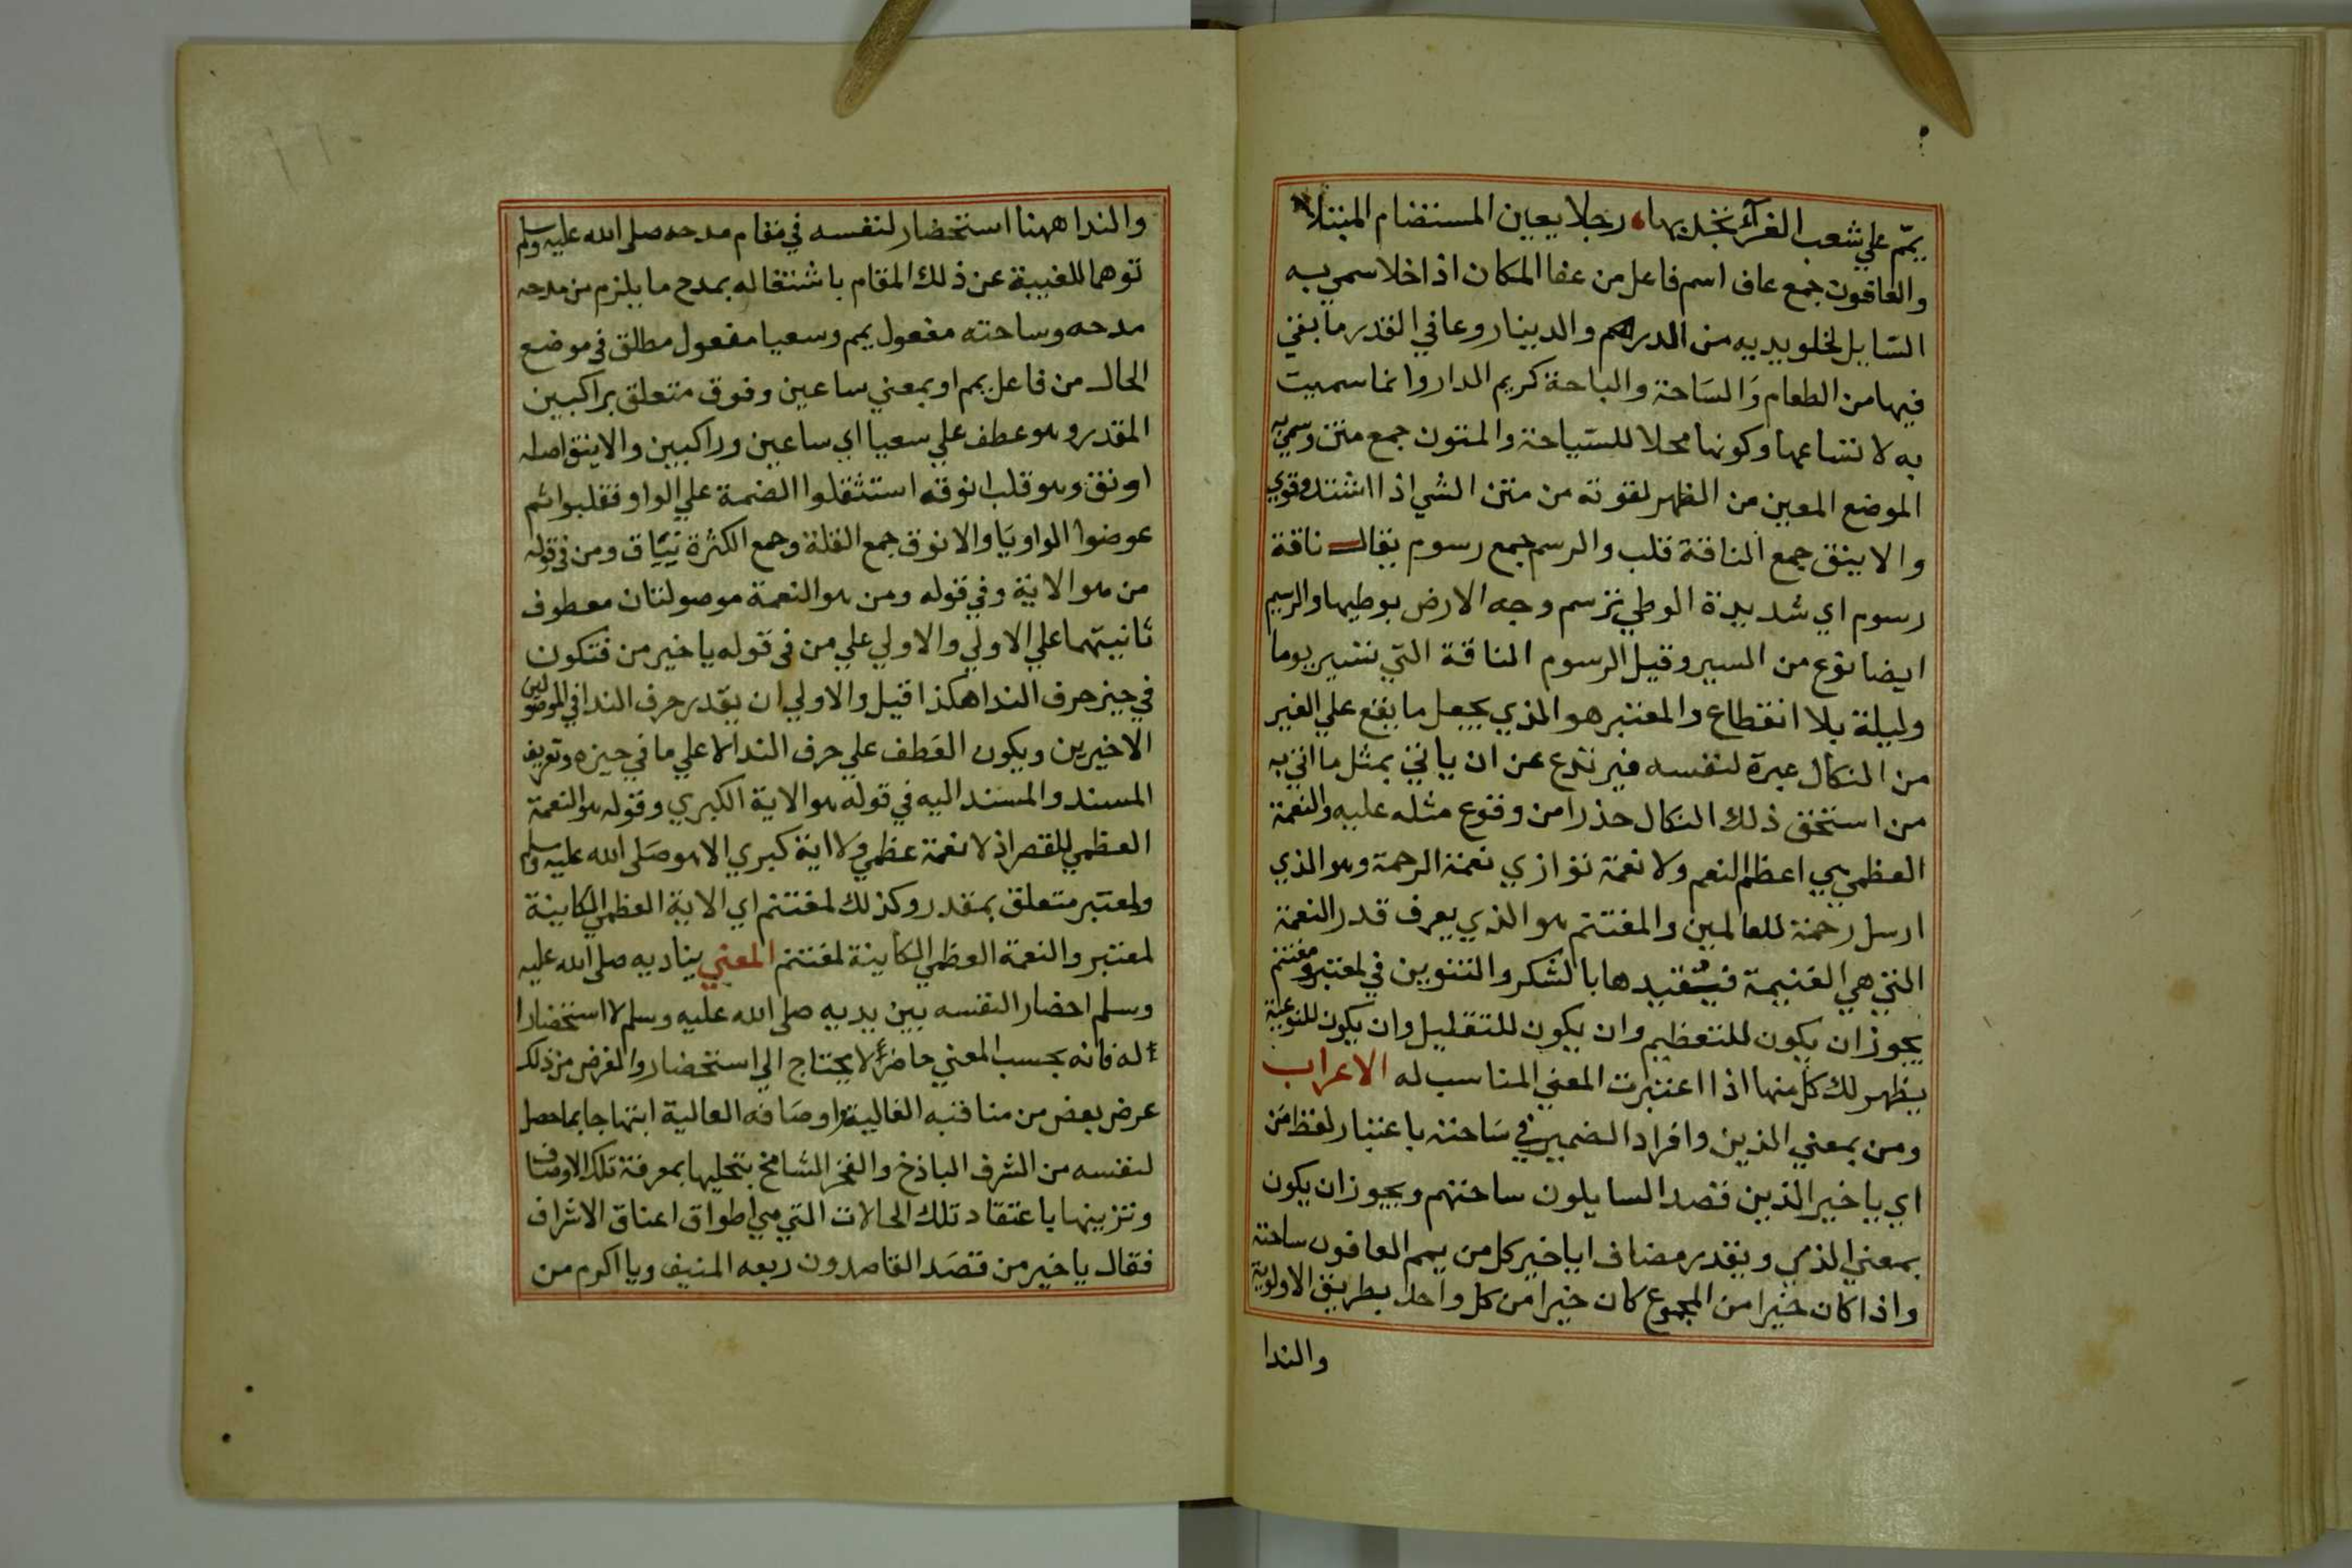 يمّم علي شعب الغرآء تجد بها رجلا يعين المستضام المبتلا
والعافون جمع عاف اسم فاعل من عفا المكان اذا خلا سمي به
السّايل لخلو يديه من الدراهم والدينار وعافي القدر ما بقي
فيها من الطعام وَالسَاحة والباحة كريم الدار وانما سميت
به لاتساعها وكونها محلا للسّياحة والمتون جمع متن وسمي به
الموضع المعين من الظهر لقوته من متن الشي اذا اشتد وقوي
والاينق جمع الناقة قلب والرسم جمع رسوم يقال ناقة
رسوم اي شديدة الوطي ترسم وجه الارض بوطيها والرسيم
ايضا نوع من السير وقيل الرسوم الناقة التي تسير يوما
وليلة بلا انقطاع والمعتبر هو الذي يجعل ما يقع علي الغير
من النكال عبرة لنفسه فيرتدع عن ان ياتي بمثل ما اتي به
من استحق ذلك النكال حذرا من وقوع مثله عليه والنعمة
العظمي هي اعظم النعم ولا نعمة توازي نعمة الرحمة وهو الذي
ارسل رحمة للعالمين والمغتنم هو الذي يعرف قدر النعمة
التي هي الغنيمة فيقيدها بالشكر والتنوين في لمعتبر ومغتنم
يجوز ان يكون للتعظيم وان يكون للتقليل وان يكون للنوعية
يظهر لك كل منها اذا اعتبرت المعني المناسب له الاعراب
ومن بمعني الذين وافراد الضمير في سَاحته باعتبار لفظ مَن
اي يا خير الذين قصد السايلون ساحتهم ويجوز ان يكون
بمعني الذي ويقدر مضاف اي يا خير كل من يمم العافون ساحته
واذا كان خيرا من المجموع كان خيرا من كل واحد بطريق الاولوية
والندا
والندا ههنا استحضار لنفسه في مقام مدحه صلي الله عليه وسلم
توهما للغيبة عن ذلك المقام باشتغاله بمدح ما يلزم من مدحه
مدحه وساحته مفعول يمم وسعيا مفعول مطلق في موضع
الحال من فاعل يمم او بمعني ساعين وفوق متعلق براكبين
المقدر وهو عطف علي سعيا اي ساعين وراكبين والاينق اصله
اونق وهو قلب انوقه استثقلوا الضمة علي الواو فقلبوا ثم
عوضوا الواو يَا والانوق جمع القلة وجمع الكثرة نيَاق ومن في قوله
من هو الاية وفي قوله ومن هو النعمة موصولتان معطوف
ثانيتهما علي الاولي والاولي علي من في قوله يا خير من فتكون
في حيز حرف الندا هكذا قيل والاولي ان يقدر حرف الندا في الموصولين
الاخيرين ويكون العَطف علي حرف الندا لا علي ما في حيزه وتعريف
المسند والمسند اليه في قوله هو الاية الكبري وقوله هو النعمة
العظمي للقصر اذ لا نعمة عظمي ولا اية كبري الا هو صَلي الله عليه وسلم
ولمعتبر متعلق بمقدر وكذلك لمغتنم اي الاية العظمي الكاينة
لمعتبر والنعمة العظمي الكاينة لمغتنم المعني يناديه صلي الله عليه
وسلم احضار النفسه بين يديه صلي الله عليه وسلم لا استحضارا
له فانه بحسب المعني حاضرأ لا يحتاج الي استحضار والغرض من ذلك
عرض بعض من مناقبه الغالية واوصَافه العالية ابتهاجا بما حصل
لنفسه من الشرف الباذخ والفخر الشامخ بتحليها بمعرفة تلك الاوصاف
وتزيينها باعتقاد تلك الحالات التي هي اطواق اعناق الاشراف
فقال يا خير من قصَد القاصدون ربعه المنيف ويا اكرم من